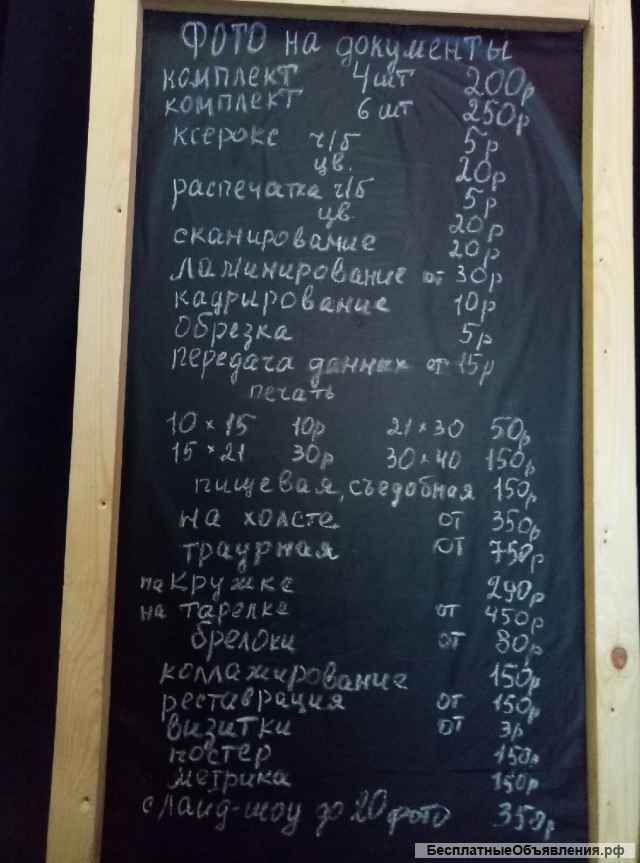 ФОТО на документы
комплект 4 шт 200р
комплект 6 шт 250р
ксерокс ч/б 5р
цв. 20р
распечатка ч/б 5р
цв 20р
сканирование 20р
ламинирование от 30р
кадрирование 10р
обрезка 5р
передача данных от 15р
печать
10×15 10р 21×30 50р
15×21 30р 30×40 150р
пищевая, съедобная 150р
на холсте от 350р
траурная от 750р
на кружке 290р
на тарелке от 450р
брелоки от 80р
коллажирование 150р
реставрация от 150р
визитки от 3р
постер 150р
метрика 150р
слайд-шоу до 20 фото 350р
БесплатныеОбъявления.рф